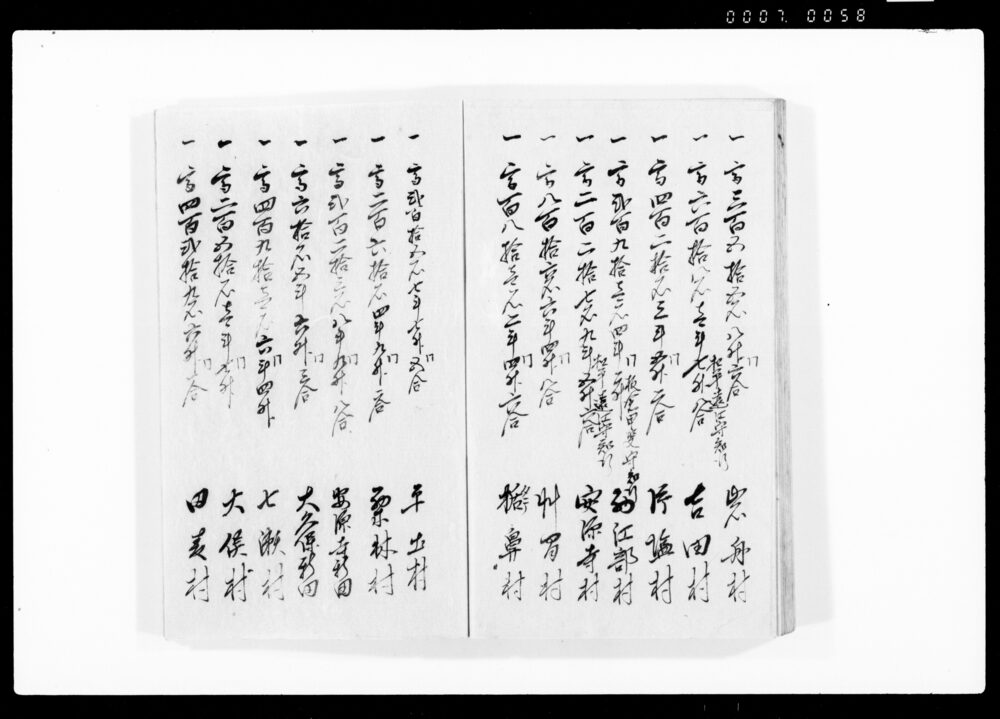 0007.0058
一 高三百五拾五石八升六合 岩舟村
一 高六百拾八石壱斗七升八合 松平遠江守知行 吉田村
一 高四百二拾石三斗五升六合 片塩村
一 高弐百九拾壱石四斗 板倉甲斐守知行 江部村
一 高二百二拾七石九斗五升六合 松平遠江守知行 安源寺村
一 高八百拾六石六斗四升八合 草間村
一 高百八拾壱石二斗四升六合 鼻村
一 高弐百拾五石七斗七升五合 平出村
一 高二百六拾石四斗九升六合 栗林村
一 高弐百二拾三石八斗九升八合 安源寺新田
一 高六拾石五斗六升三合 大久保新田
一 高四百九拾壱石六斗四升 七瀬村
一 高二百五拾石壱斗七升 大俣村
一 高四百弐拾九石六升八合 田麦村